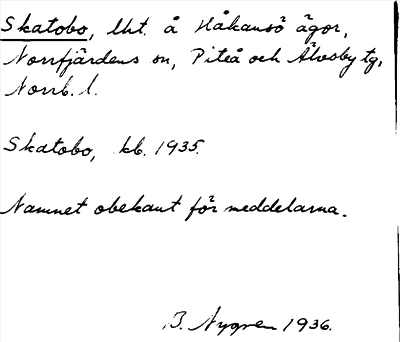 Skatobo, lht. å Håkansö ägor,
Norrfjärdens sn, Piteå och Älvsby tg,
Norrb. l.
Skatobo, kb. 1935.
Namnet obekant för meddelarna.
B. Nygren 1936.